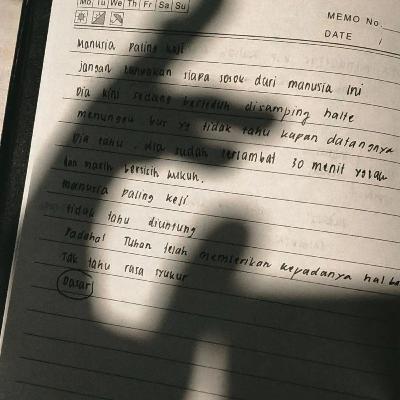 Mo Tu We Th Fr Sa Su
MEMO No.
DATE /
Manusia paling keji
jangan tanyakan siapa sosok dari manusia ini
Dia kini sedang berteduh disamping halte
menunggu bus yg tidak tahu kapan datangnya
Dia tahu, dia sudah terlambat 30 menit yg lalu
dan masih bersikukuh.
manusia paling keji
tidak tahu diuntung
Padahal Tuhan telah memberikan kepadanya hal
Tak tahu rasa syukur
Dasar